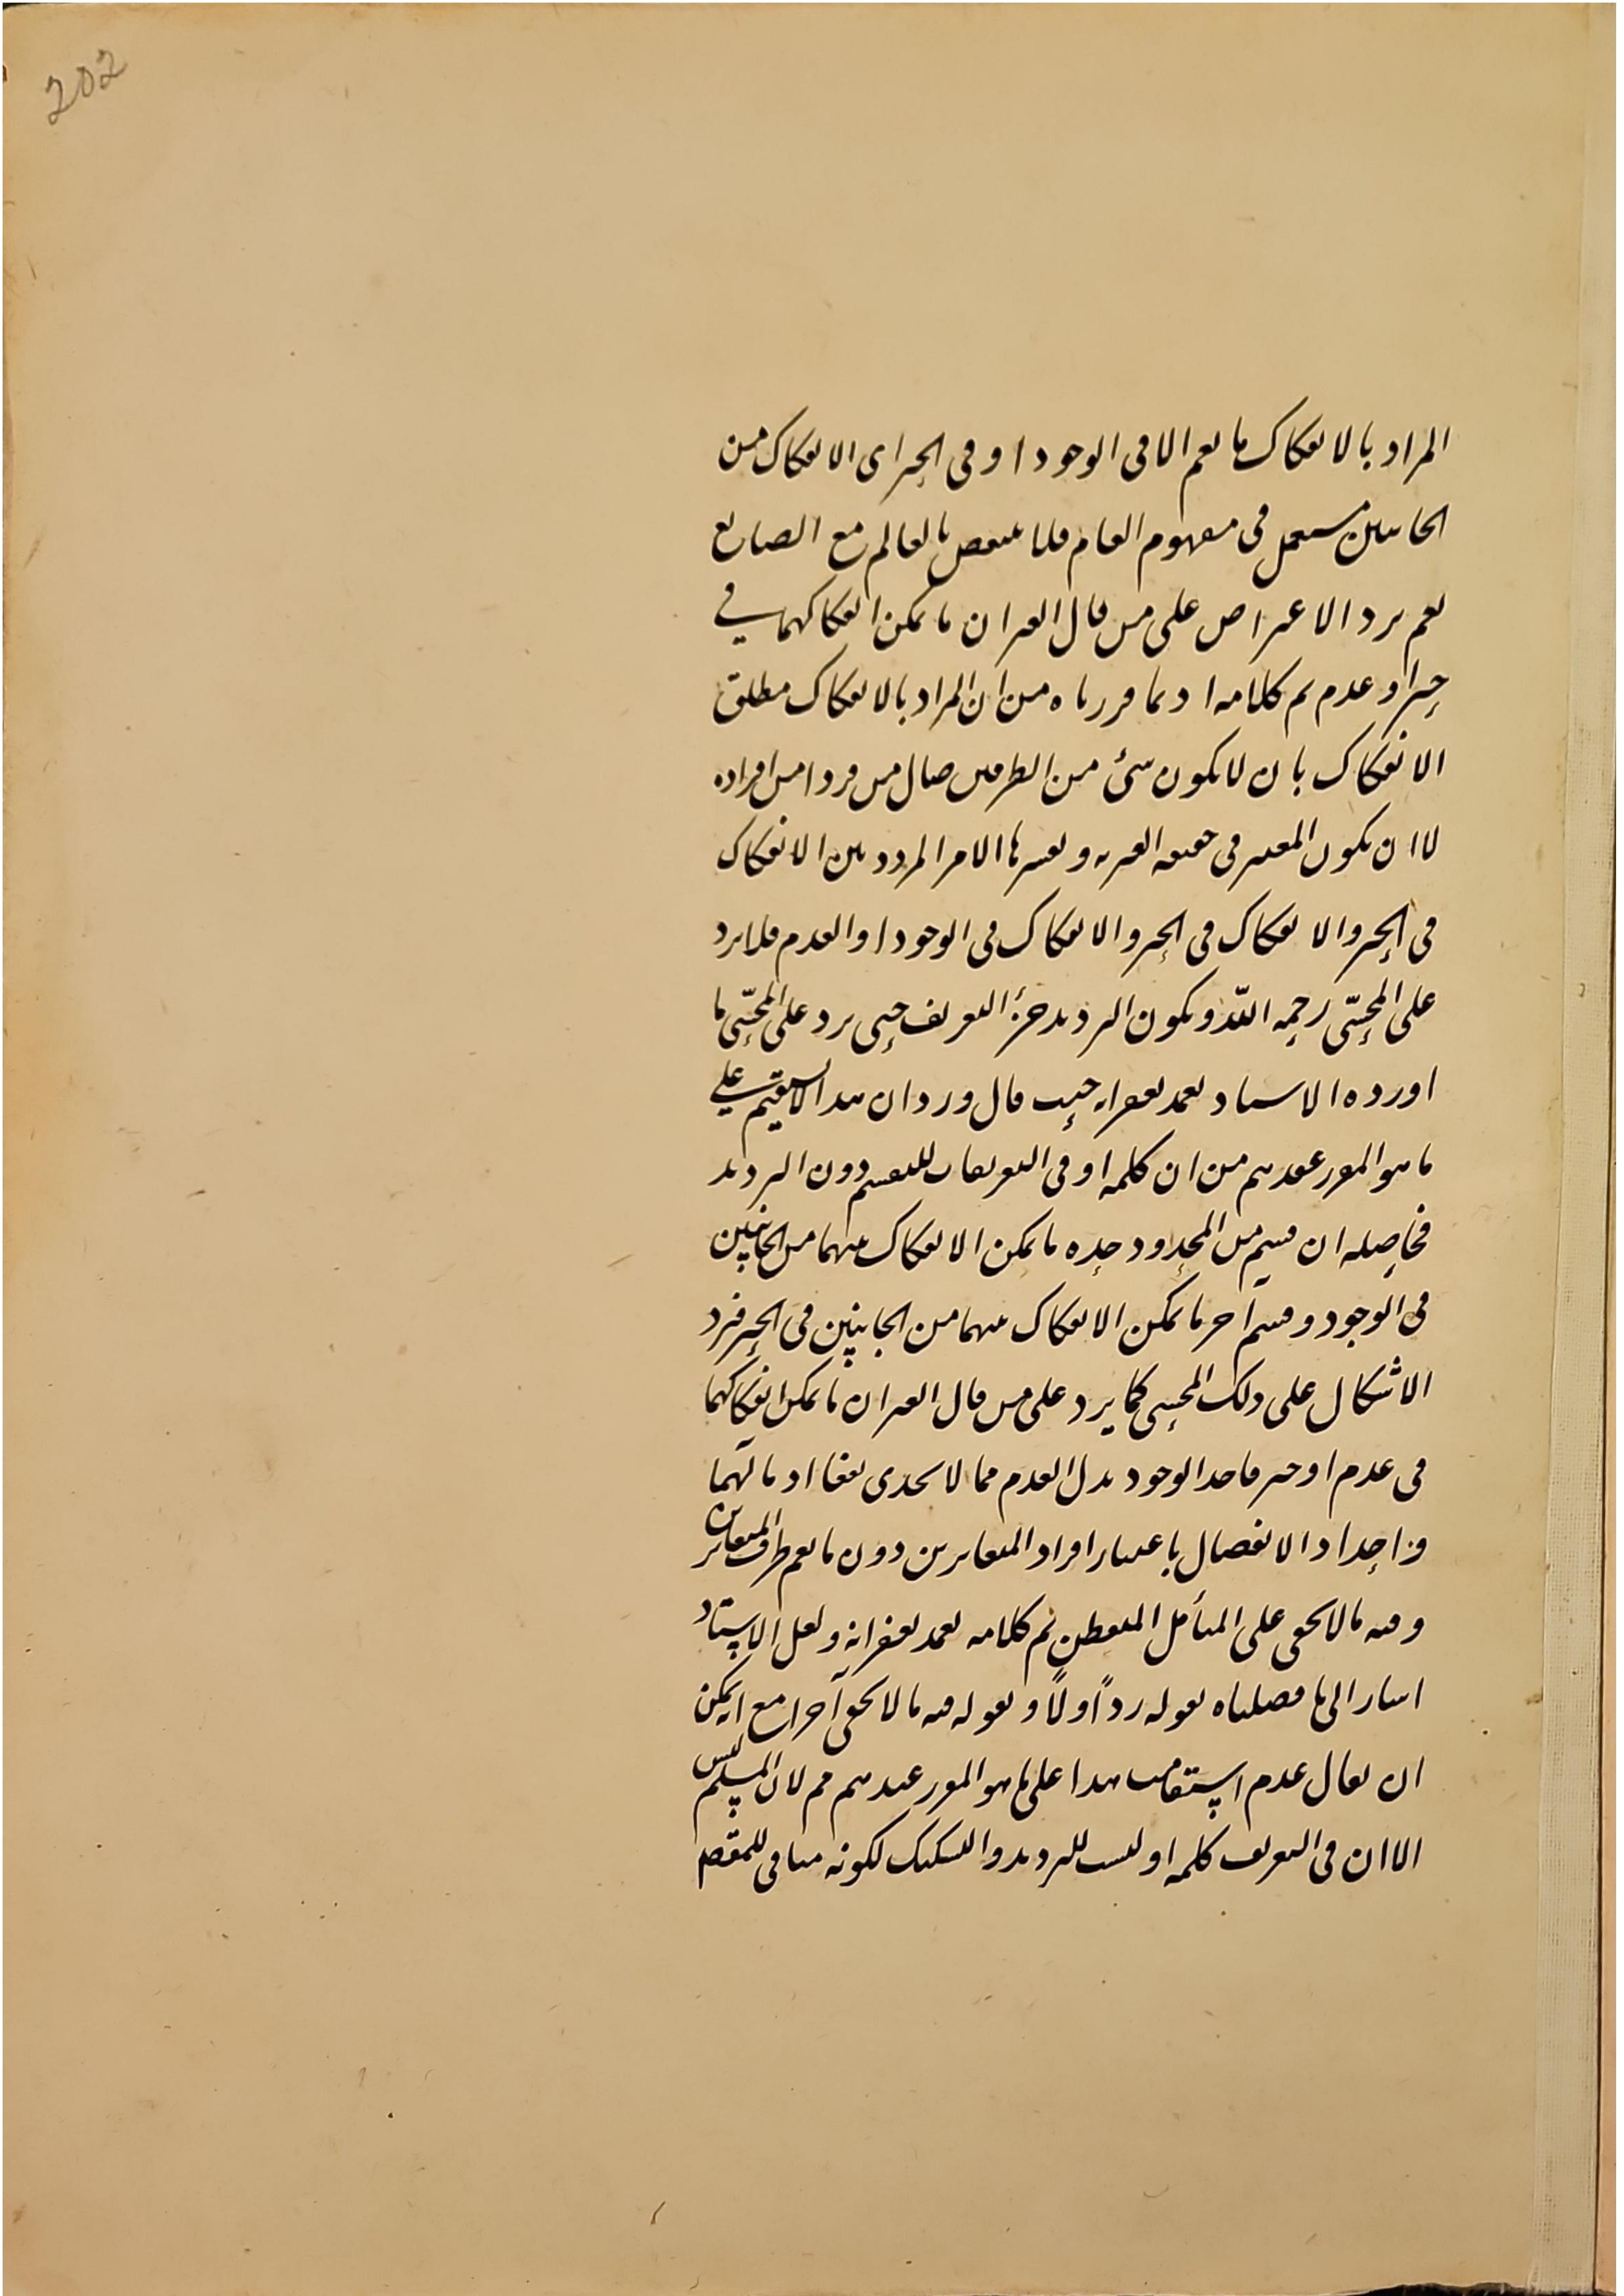 202
المراد بالانفكاك ما يعم الا فى الوجود او فى الحيز اى الانفكاك من
الجانبين مستعمل فى مفهوم العام فلا ينتقض بالعالم مع الصانع
نعم يرد الاعتراض على من قال الغيران ما يمكن انفكاكهما في
حيز او عدم تم كلامه اذ بما قررناه من ان المراد بالانفكاك مطلق
الانفكاك بان لا يكون شئ من الطرفين من فردا من افراده
لا ان يكون المعتبر فى حقيقة الغيرية وتفسيرها الامر المردد بين الانفكاك
فى الحيز والانفكاك فى الحيز والانفكاك فى الوجود او العدم فلا يرد
على المحشّى رحمه اللّه ويكون الترديد جزء التعريف حتى يرد على المحشّى ما
اورده الاستاد تغمد بغفرانه حيث قال ورد ان هذا لا يستقيم علي
ما هو المقرر عندهم من ان كلمة او فى التعريفات للتقسيم دون الترديد
فحاصله ان قسم من المحدود حده ما يمكن الانفكاك بينهما من الجانبين
فى الوجود وقسم آخر ما يمكن الانفكاك بينهما من الجانبين فى الحيز فيرد
الاشكال على ذلك المحشى كما يرد على من قال الغيران ما يمكن انفكاكهما
فى عدم او حيز فاخذ الوجود بدل العدم مما لا يجدى نفعا اذ مآلهما
واحد اذ الانفصال باعتبار افراد المتغايرين دون ما يعم طرف المتغايرين
وفيه ما لا يخفى على المتأمل المتفطن تم كلامه تغمد بغفرانه ولعل الاستاد
اشار الى ما فصلناه بقوله رد اولاً وبقوله فيه ما لا يخفى آخرا مع انه يمكن
ان يقال عدم استقامت هذا على ما هو المقرر عندهم مم لان المسلم ليس
الا ان فى التعريف كلمة او ليست للترديد والتشكيك لكونه منافى للمقصم